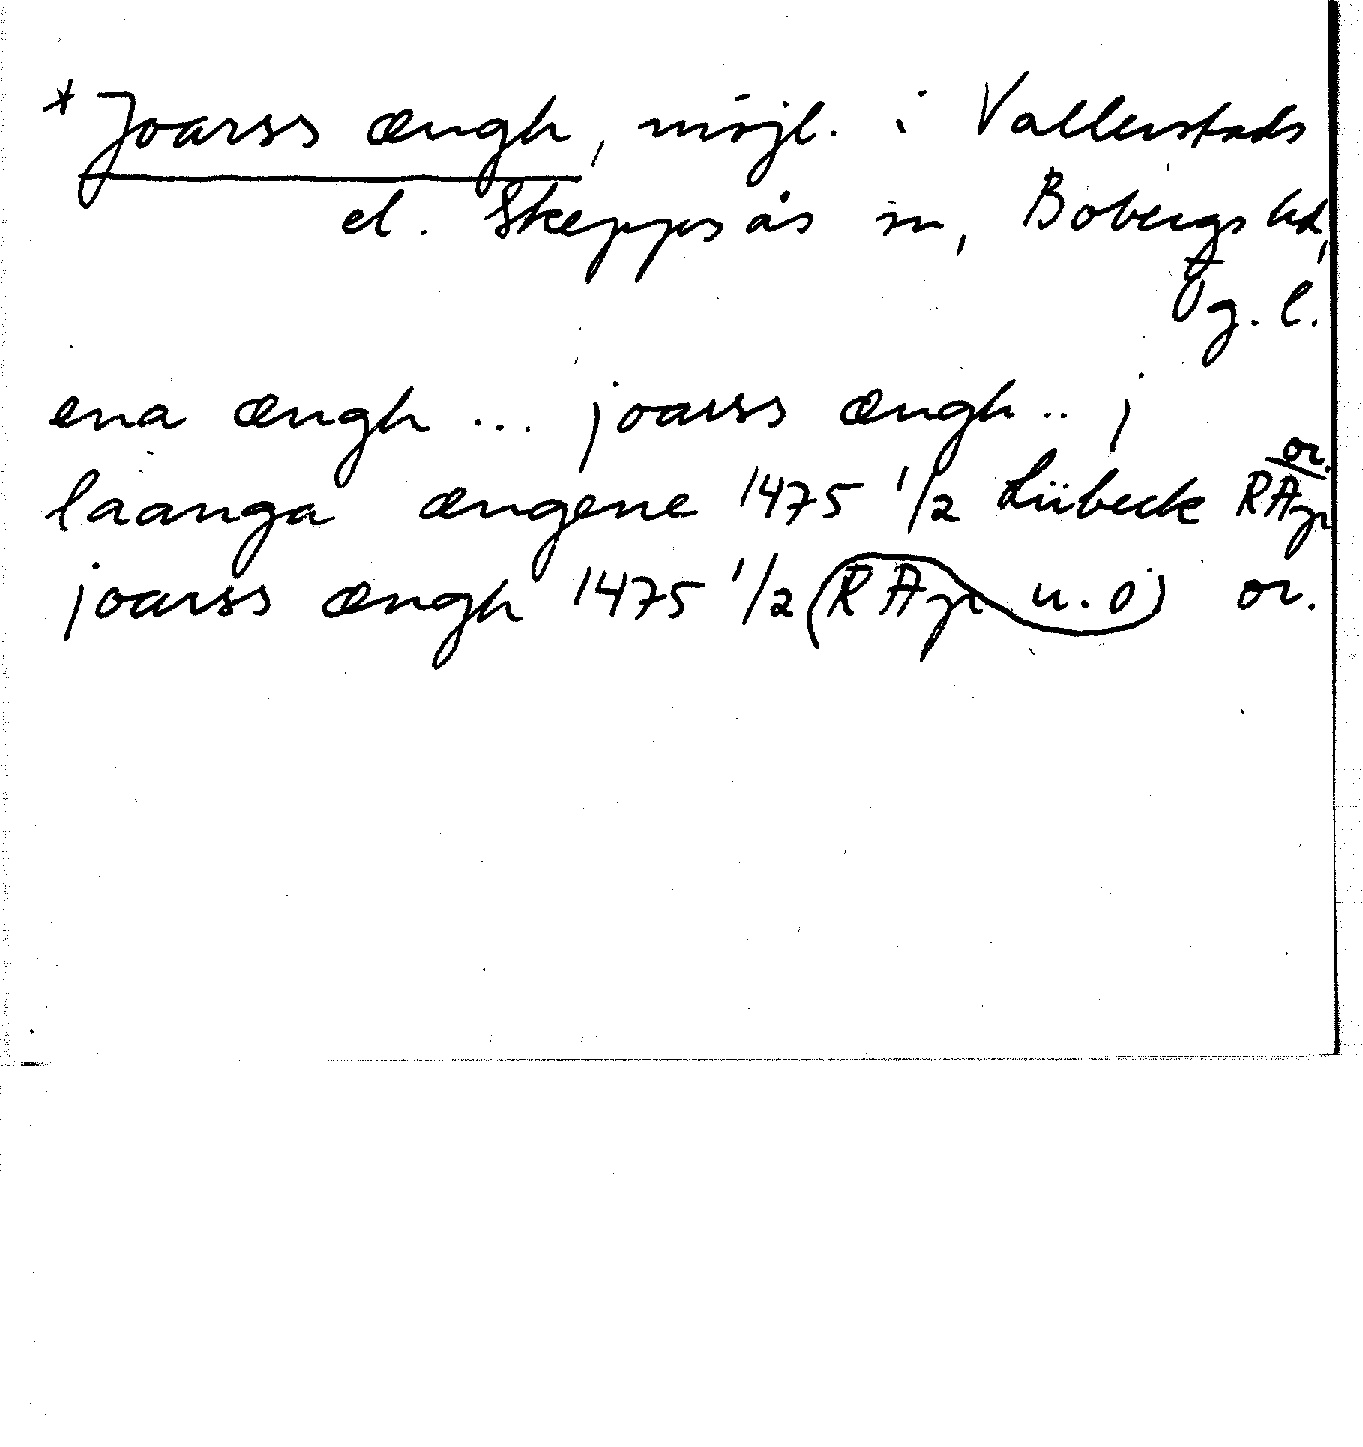 * Joarss ængh, möjl. i Vallerstads
el. Skeppsås sn, Bobergs hd,
Ög. l.
ena ængh ... joarss ængh .. j
laanga ængene 1475 1/2 Lübeck RAp or.
joarss ængh 1475 1/2 (RAp u.o) or.